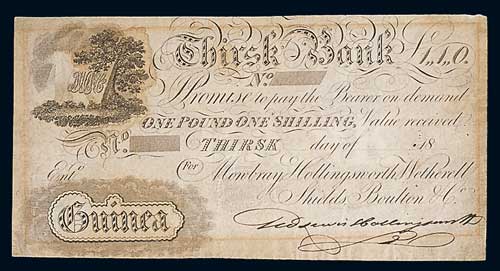 Thirsk Bank £1,,1,,0.
No.
I Promise to pay the Bearer on demand
ONE POUND ONE SHILLING, Value received
No. THIRSK day of 18
Entd. For Mowbray, Hollingsworth, Wetherell
Shields, Boulton & Co.
Guinea